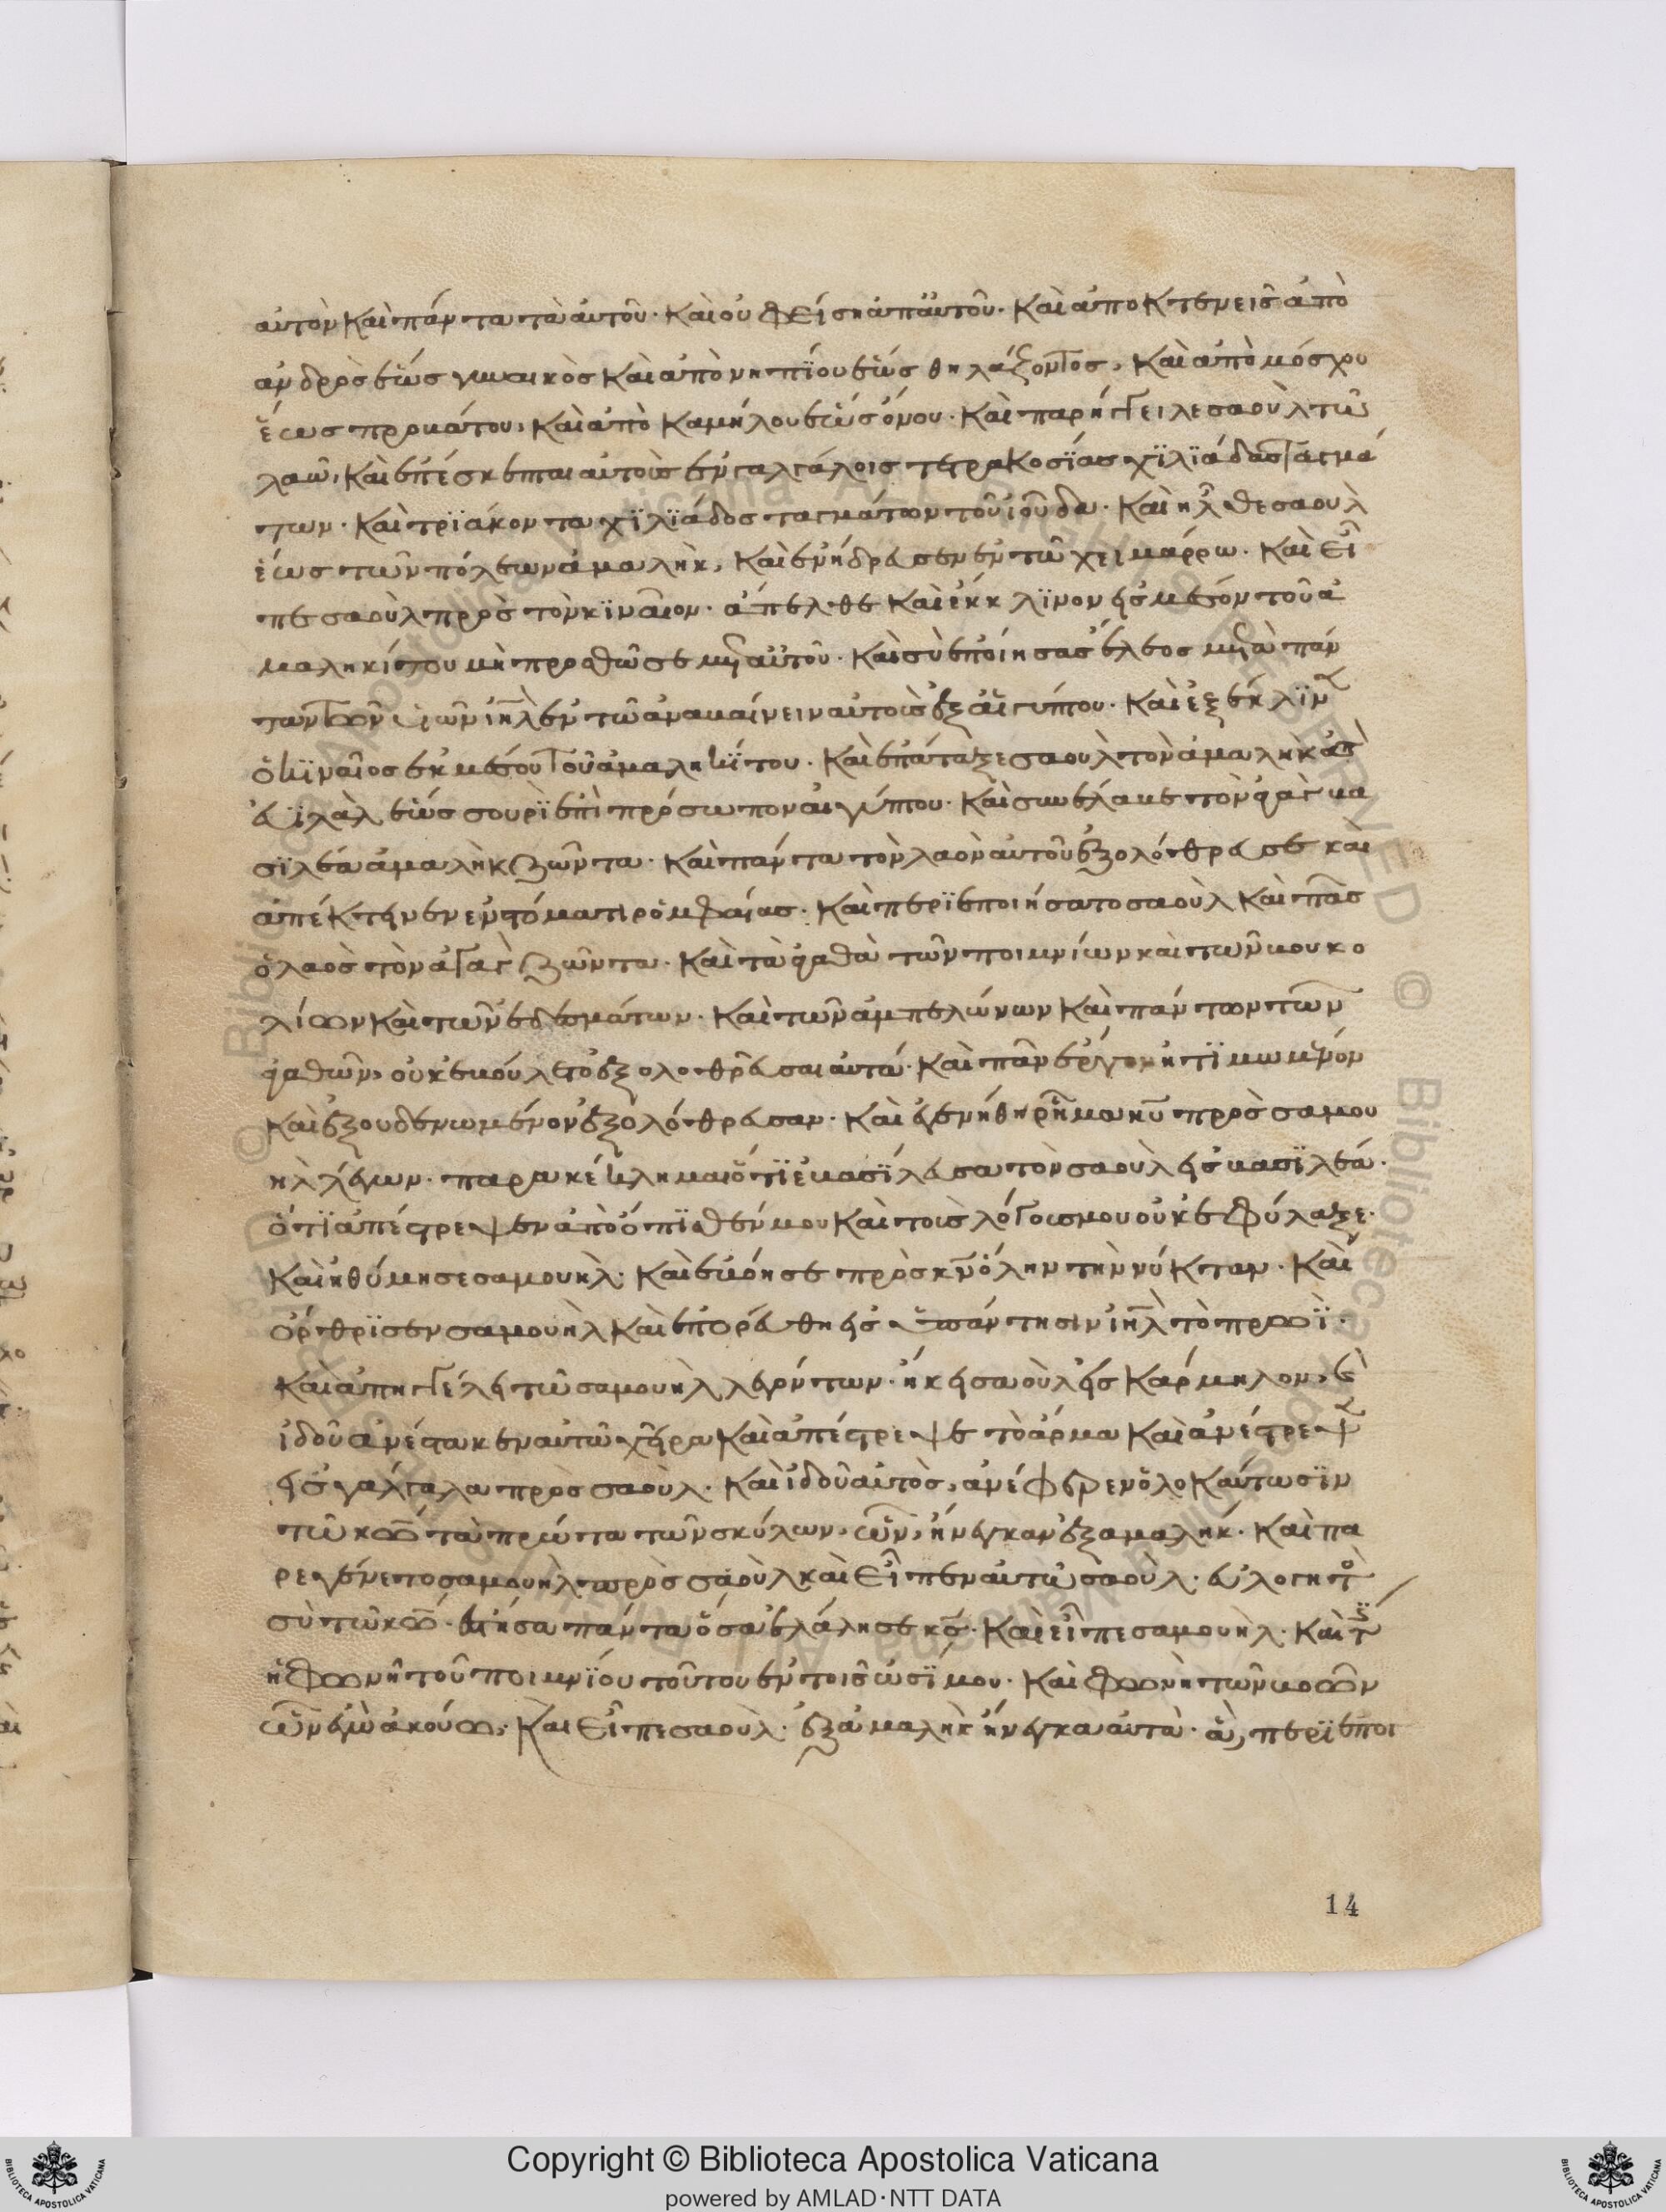 αὐτὸν καὶ πάντα τὰ αὐτοῦ· καὶ οὐ φείση ἀπ αὐτοῦ· καὶ ἀποκτενεῖς ἀπὸ
ἀνδρὸς ἕως γυναικὸς καὶ ἀπὸ νηπΐου ἕως θηλάζοντος, καὶ ἀπὸ μόσχου
ἕως προβάτου, καὶ ἀπὸ καμήλου ἕως ὄνου· καὶ παρήγγειλε σαοὺλ τῶ
λαῶ, καὶ ἐπέσκεπται αὐτοὺς ἐν γαλγάλοις τετρακοσΐας χϊλϊάδας ταγμά
των· καὶ τρϊάκοντα χϊλϊάδας ταγμάτων τοῦ ἰούδα· καὶ ἦλθε σαουλ
ἕως τῶν πόλεων ἀμαλὴκ, καὶ ἐνήδρευσεν ἐν τῶ χειμάρρω· καὶ εἶ
πε σαοὺλ πρὸς τὸν κϊναῖον· ἄπελθε καὶ ἔκκλϊνον ἐκ μέσου τοῦ ἀ
μαληκίτου μὴ προσθῶ σε μετ αὐτοῦ· καὶ σὺ ἐποίησας ἔλεος μετὰ πάν
των τῶν υἱῶν ιηλ ἐν τῶ ἀναβαίνειν αὐτοὺς ἐξ αἰγύπτου· καὶ ἐξέκλϊν
ὁ κϊναῖος ἐκ μέσου τοῦ ἀμαληκΐτου· καὶ ἐπάταξε σαουλ τὸν ἀμαλὴκ ἀπ
εὐϊλὰλ ἕως σουρϊ ἐπὶ πρόσωπον αἰγύπτου· καὶ συνέλαβε τὸν ἀγὰγ βα
σϊλέα ἀμαλὴκ ζῶντα· καὶ πάντα τὸν λαὸν αὐτοῦ ἐξολόθρευσε καὶ
ἀπέκτεινεν ἐν στόματι ῥομφαίας· καὶ περϊεποιήσατο σαοὺλ καὶ πᾶς
ὁ λαὸς τὸν ἀγὰγ ζῶντα· καὶ τὰ ἀγαθὰ τῶν ποιμνίων καὶ τῶν βουκο
λίων καὶ τῶν ἐδεσμάτων· καὶ τῶν ἀμπελώνων καὶ πάντων τῶν
ἀγαθῶν, οὐκ ἐβούλετο ἐξολοθρεῦσαι αὐτά· καὶ πᾶν ἔργον ἠτϊμωμένον
καὶ ἐξουδενωμένον ἐξολόθρευσαν· καὶ ἐγενήθη ῥῆμα κυ πρὸς σαμου
ὴλ λέγων· παρακέκλημαι ὅτϊ ἐβασΐλευσα τὸν σαοὺλ εἰς βασϊλέα·
ὅτϊ ἀπέστρεψεν ἀπὸ ὄπϊσθέν μου καὶ τοὺς λόγους μου οὐκ ἐφύλαξε·
καὶ ἠθύμησε σαμουὴλ· καὶ ἐβόησε πρὸς κν ὅλην τὴν νύκταν· καὶ
ὄρθρϊσεν σαμουὴλ καὶ ἐπορεύθη εἰς ἀπάντησιν ιηλ τὸ πρωῒ·
καὶ ἀπηγγέλη τῶ σαμουὴλ λεγόντων· ἥκει σαοὺλ εἰς κάρμηλον, καὶ
ἰδοῦ ἀνέστακεν αὐτῶ χεῖρα καὶ ἀπέστρεψε τὸ ἅρμα καὶ ἀνέστρεψ
εἰς γάλγαλα πρὸς σαοὺλ· καὶ ἰδοῦ αὐτὸς, ἀνέφερεν ὁλοκαύτωσϊν
τῶ κω τὰ πρῶτα τῶν σκύλων, ὧν, ἤνεγκαν ἐξ αμαλήκ· καὶ πα
ρεγένετο σαμουὴλ πρὸς σαοὺλ καὶ εἶπεν αὐτῶ σαοὺλ· εὐλογητὸ
σὺ τῶ κω· ἔστησα πάντα ὅσα ἐλάλησε κς· καὶ εἶπε σαμουὴλ· καὶ τίς
ἡ φωνὴ τοῦ ποιμνΐου τούτου ἐν τοῖς ὠσΐ μου· καὶ φωνὴ τῶν βοῶν
ὧν ἐγὼ ἀκούω, καὶ εἶπε σαοὺλ· ἐξ ἀμαλὴκ ἤνεγκα αὐτὰ· ἃ, περϊεποι
14
Copyright © Biblioteca Apostolica Vaticana
powered by AMLAD·NTT DATA